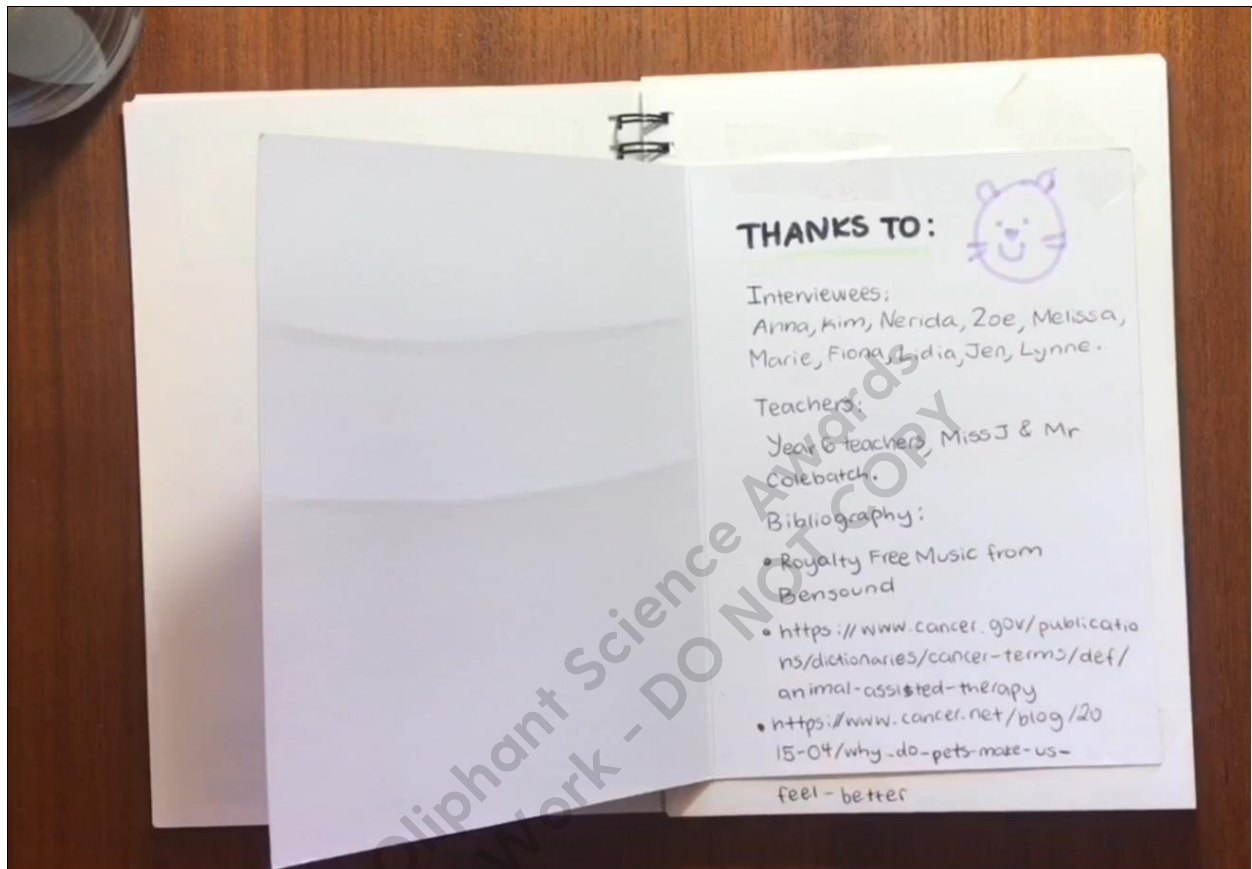 THANKS TO:
Interviewees:
Anna, Kim, Nerida, Zoe, Melissa,
Marie, Fiona, Lidia, Jen, Lynne.
Teachers:
Year 6 teachers, Miss J & Mr
Colebatch.
Bibliography:
• Royalty Free Music from
Bensound
• https://www.cancer.gov/publicatio
ns/dictionaries/cancer-terms/def/
animal-assisted-therapy
• https://www.cancer.net/blog/20
15-04/why-do-pets-make-us-
feel-better
Oliphant Science Awards
Work - DO NOT COPY